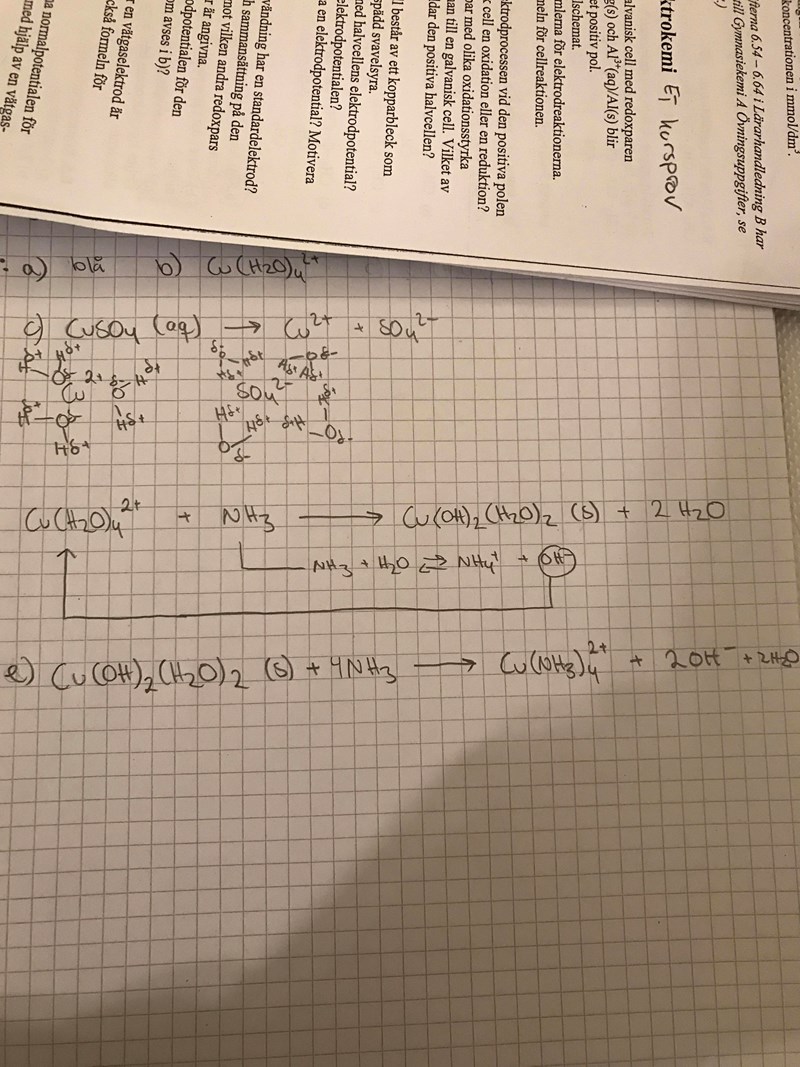 koncentrationen i mmol/dm³.
fterna 6.54 – 6.64 i Lärarhandledning B har
till Gymnasiekemi A Övningsuppgifter, se
ktrokemi Ej kursprov
alvanisk cell med redoxparen
g(s) och Al³⁺(aq)/Al(s) blir
et positiv pol.
lschemat.
mlerna för elektrodreaktionerna.
meln för cellreaktionen.
ktrodprocessen vid den positiva polen
k cell en oxidation eller en reduktion?
par med olika oxidationsstyrka
nan till en galvanisk cell. Vilket av
ldar den positiva halvcellen?
ll består av ett kopparbleck som
spädd svavelsyra.
ned halvcellens elektrodpotential?
elektrodpotentialen?
a en elektrodpotential? Motivera
vändning har en standardelektrod?
h sammansättning på den
mot vilken andra redoxpars
r är angivna.
odpotentialen för den
om avses i b)?
er en vätgaselektrod är
ckså formeln för
na normalpotentialen för
med hjälp av en vätgas-
: a) blå b) Cu(H2O)4²⁺
c) CuSO4 (aq) → Cu²⁺ + SO4²⁻
Hδ+ δ+ δ+ δo Hδ+ Oδ-
H O 2+ δo H Hδ+ Hδ+ Hδ+
Cu O SO4²⁻ δ+
H O Hδ+ Hδ+ Hδ+ δ+H Oδ-
Hδ+ Oδ-
Cu(H2O)4²⁺ + NH3 → Cu(OH)2(H2O)2 (s) + 2 H2O
NH3 + H2O ⇌ NH4⁺ + OH⁻
e) Cu(OH)2(H2O)2 (s) + 4NH3 → Cu(NH3)4²⁺ + 2OH⁻ + 2H2O